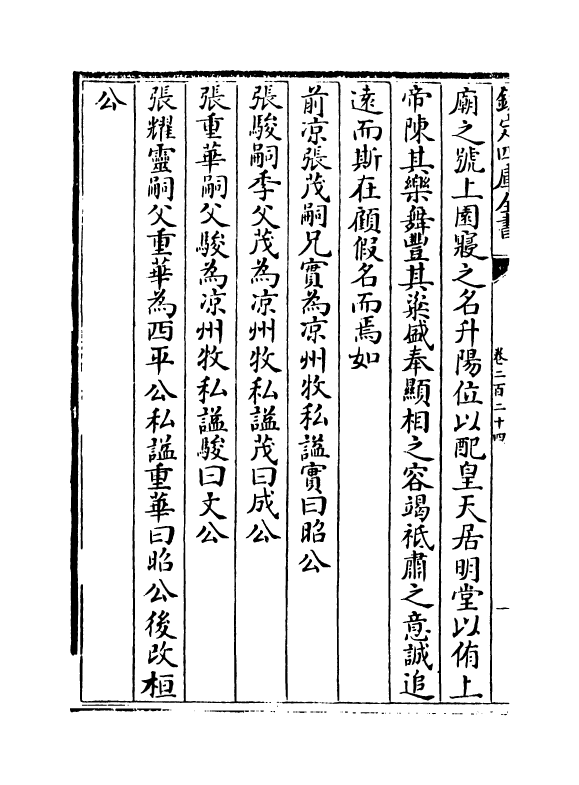 欽定四庫全書
卷二百二十四
一
廟之號上園寢之名升陽位以配皇天居明堂以侑上
帝陳其樂舞豐其粢盛奉顯相之容竭祗肅之意誠追
遠而斯在顧假名而焉如
前凉張茂嗣兄實為凉州牧私謚實曰昭公
張駿嗣季父茂為凉州牧私謚茂曰成公
張重華嗣父駿為凉州牧私謚駿曰文公
張耀靈嗣父重華為西平公私謚重華曰昭公後改桓
公